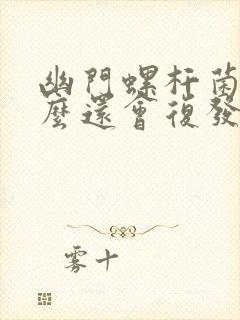 幽門螺杆菌
麼還會復發
雾十